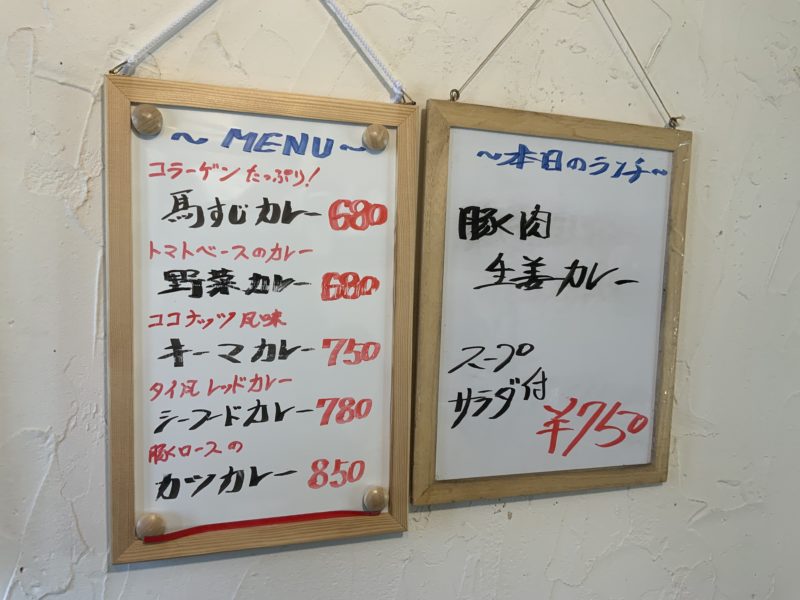 ～ MENU ～
コラーゲンたっぷり!
馬すじカレー 680
トマトベースのカレー
野菜カレー 680
ココナッツ風味
キーマカレー 750
タイ風レッドカレー
シーフードカレー 780
豚ロースの
カツカレー 850
～本日のランチ～
豚肉
生姜カレー
スープ
サラダ付
¥750